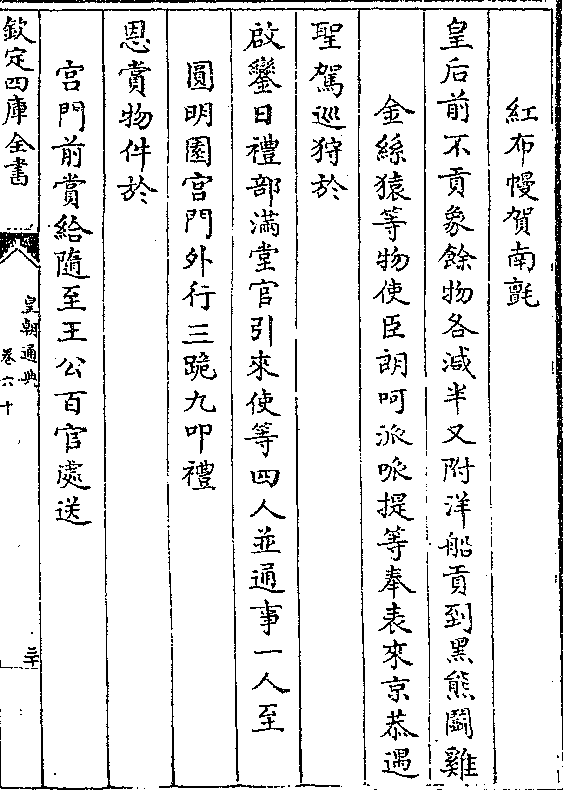 紅布幔賀南氈
皇后前不貢象餘物各減半又附洋船貢到黑熊鬭雞
金絲猿等物使臣朗呵派哌提等奉表來京恭遇
聖駕巡狩於
啟鑾日禮部滿堂官引來使等四人並通事一人至
圓明園宮門外行三跪九叩禮
恩賞物件於
宮門前賞給隨至王公百官處送
欽定四庫全書
皇朝通典
卷六十
三十